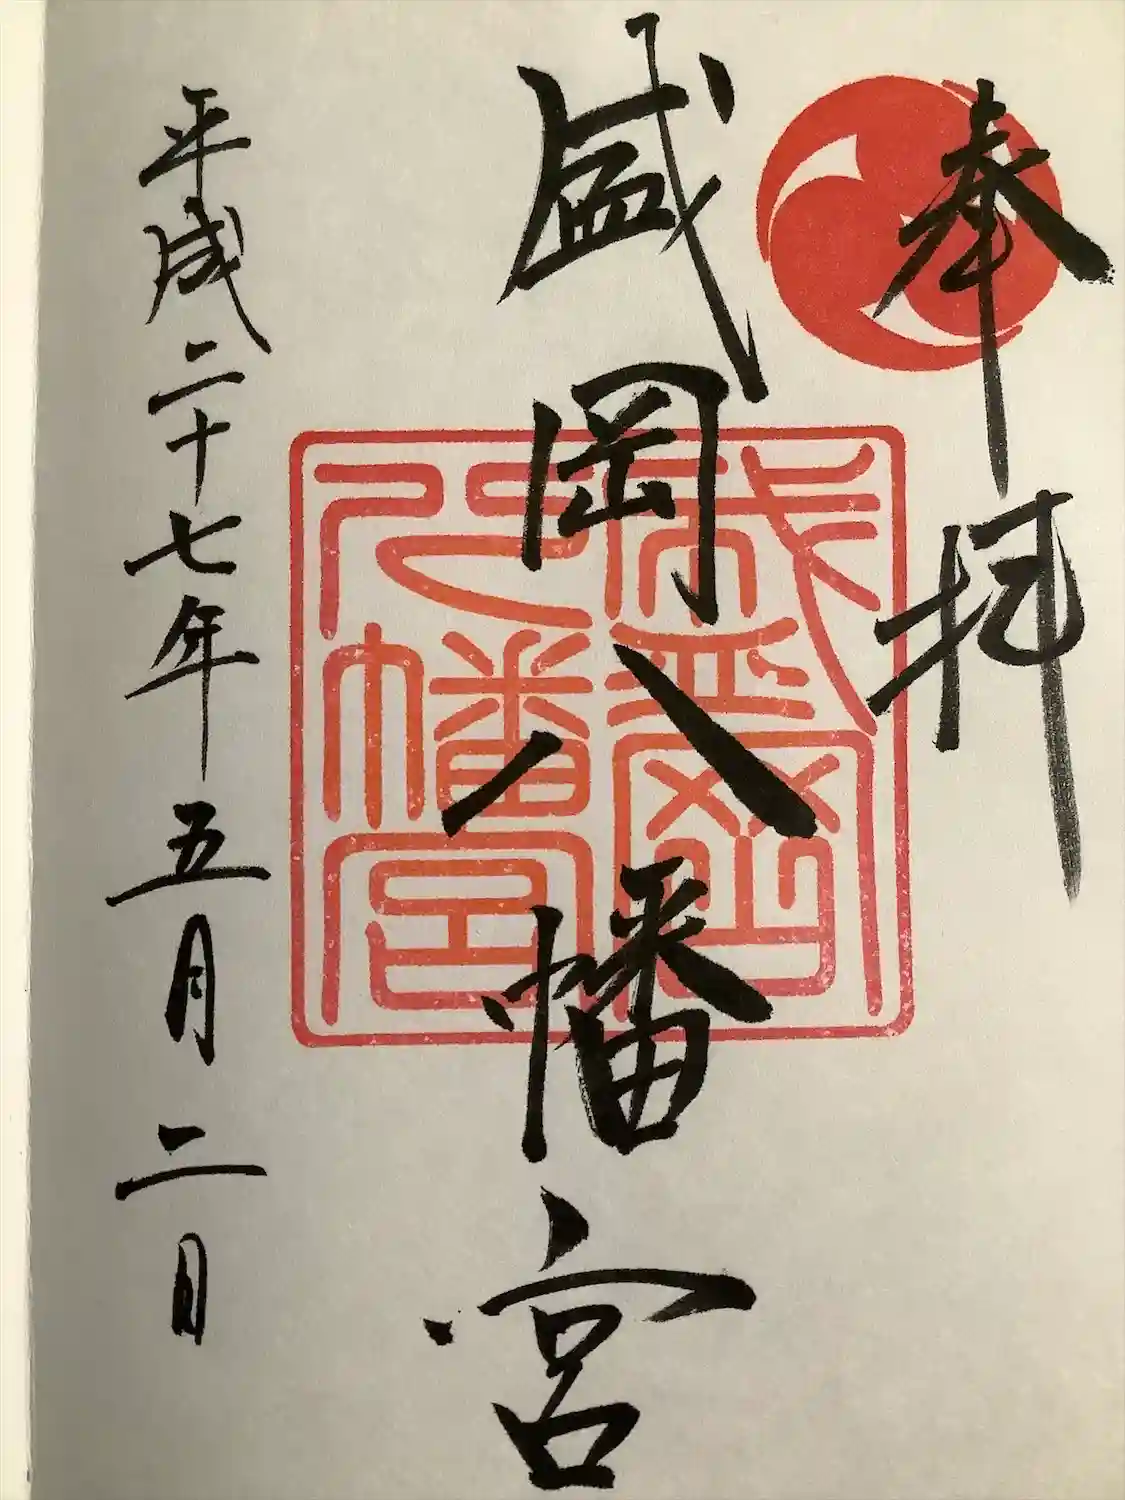 奉拝
盛岡八幡宮
盛岡八幡宮
平成二十七年五月二日